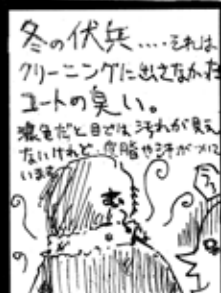 冬の伏兵‥‥それは
クリーニングに出さなかった
コートの臭い。
濃色だと目では汚れが見え
ないけれど、皮脂や汗がついて
います
む